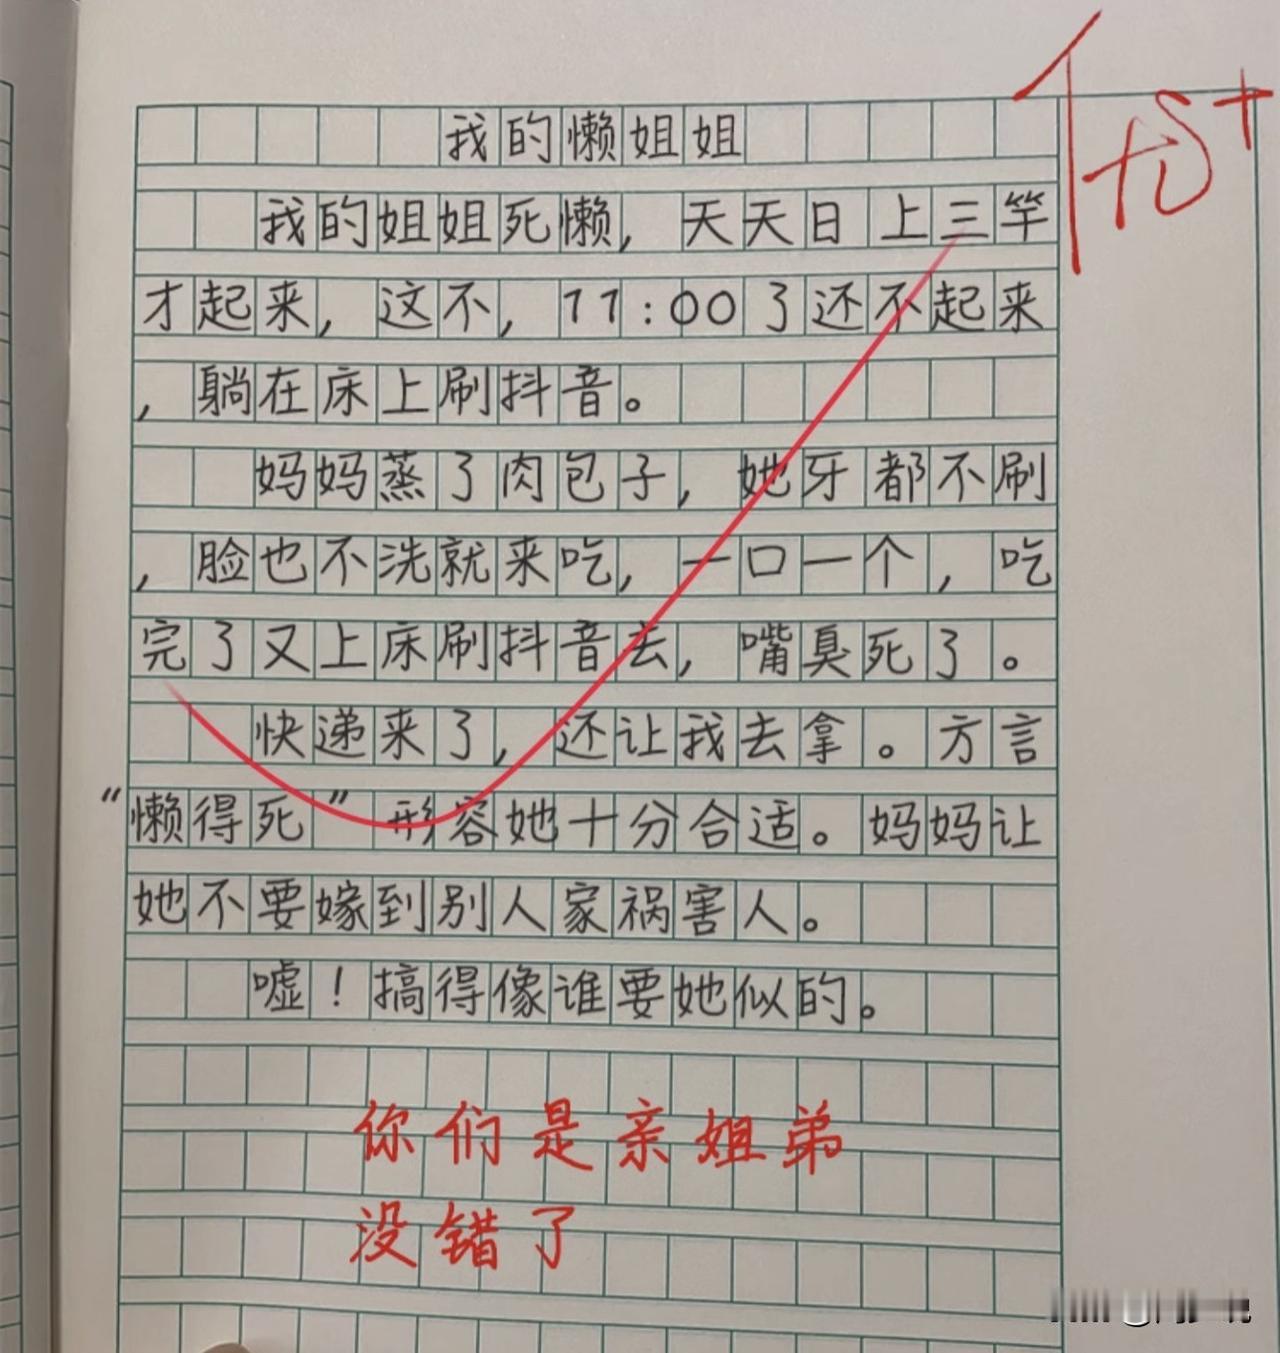 优+
我的懒姐姐
我的姐姐死懒，天天日上三竿
才起来，这不，11:00了还不起来
，躺在床上刷抖音。
妈妈蒸了肉包子，她牙都不刷
，脸也不洗就来吃，一口一个，吃
完了又上床刷抖音去，嘴臭死了。
快递来了，还让我去拿。方言
“懒得死”形容她十分合适。妈妈让
她不要嫁到别人家祸害人。
嘘！搞得像谁要她似的。
你们是亲姐弟
没错了